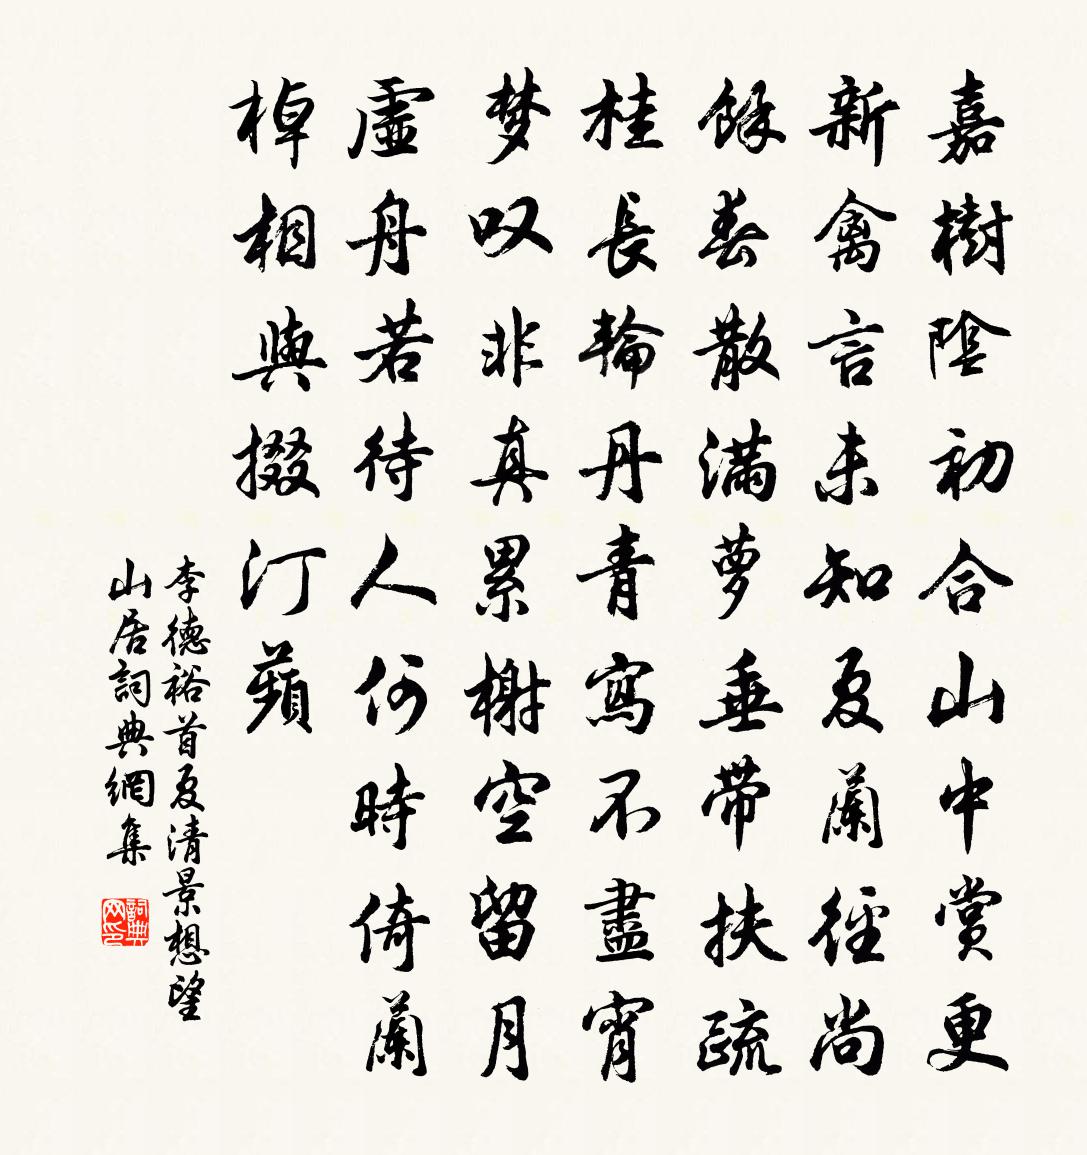 嘉樹陰初合山中賞更
新禽言未知夏蘭徑尚
餘春散滿蘿垂帶扶疏
桂長輪丹青寫不盡宵
梦叹非真累榭空留月
虛舟若待人何時倚蘭
棹相與掇汀蘋
李德裕首夏清景想望
山居詞典網集
詞典网印